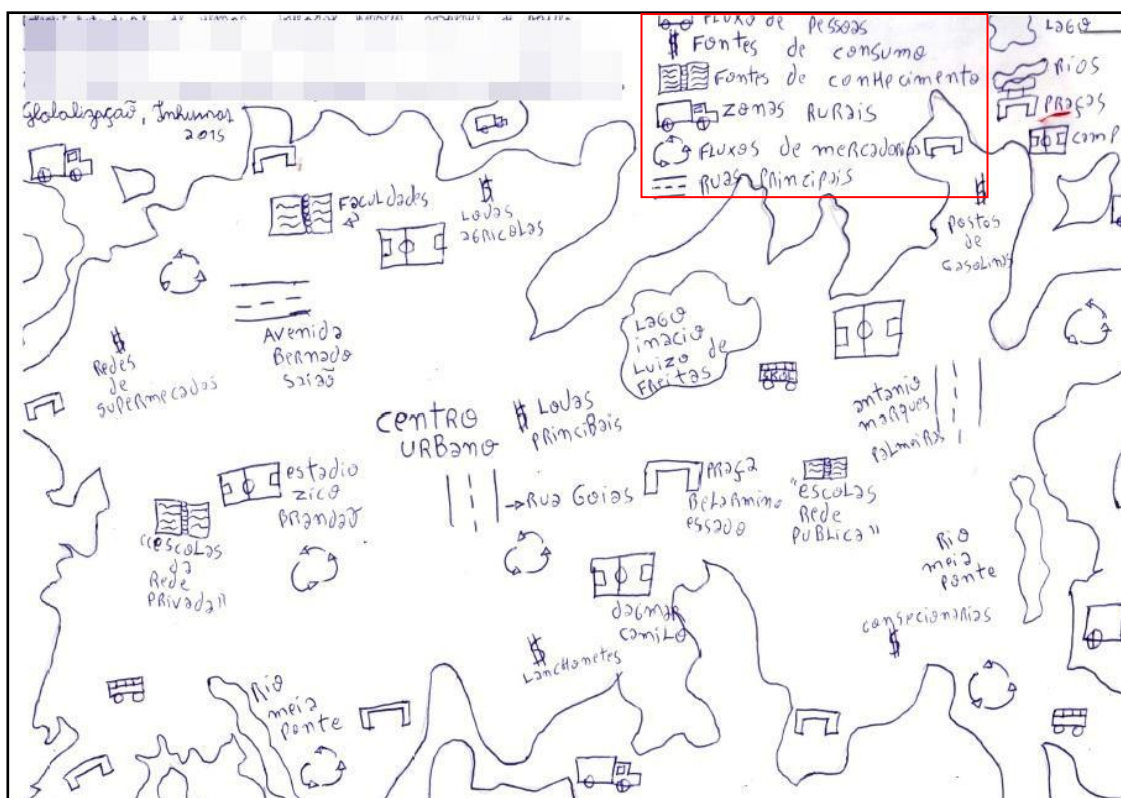 Fluxo de Pessoas
Fontes de consumo
Fontes de conhecimento
zonas Rurais
Fluxos de mercadorias
Ruas Principais
Lago
Rios
Praças
camp
Globalização, Inhumas
2015
Faculdades
Lojas
agricolas
Postos
de
Gasolinas
Avenida
Bernado
Saiaõ
Redes
de
supermecados
Lago
inacio
Luizo de
Freitas
SKOL
antanio
marques
Palmeiras
centro
urbano
Lojas
Principais
estadio
zico
Brandaõ
Rua Goias
Praça
Belarmino
essado
"escolas
Rede
Publica"
"escolas
da
Rede
Privada"
Rio
meia
Ponte
dagmar
camilo
consecionarias
Lanchonetes
Rio
meia
Ponte